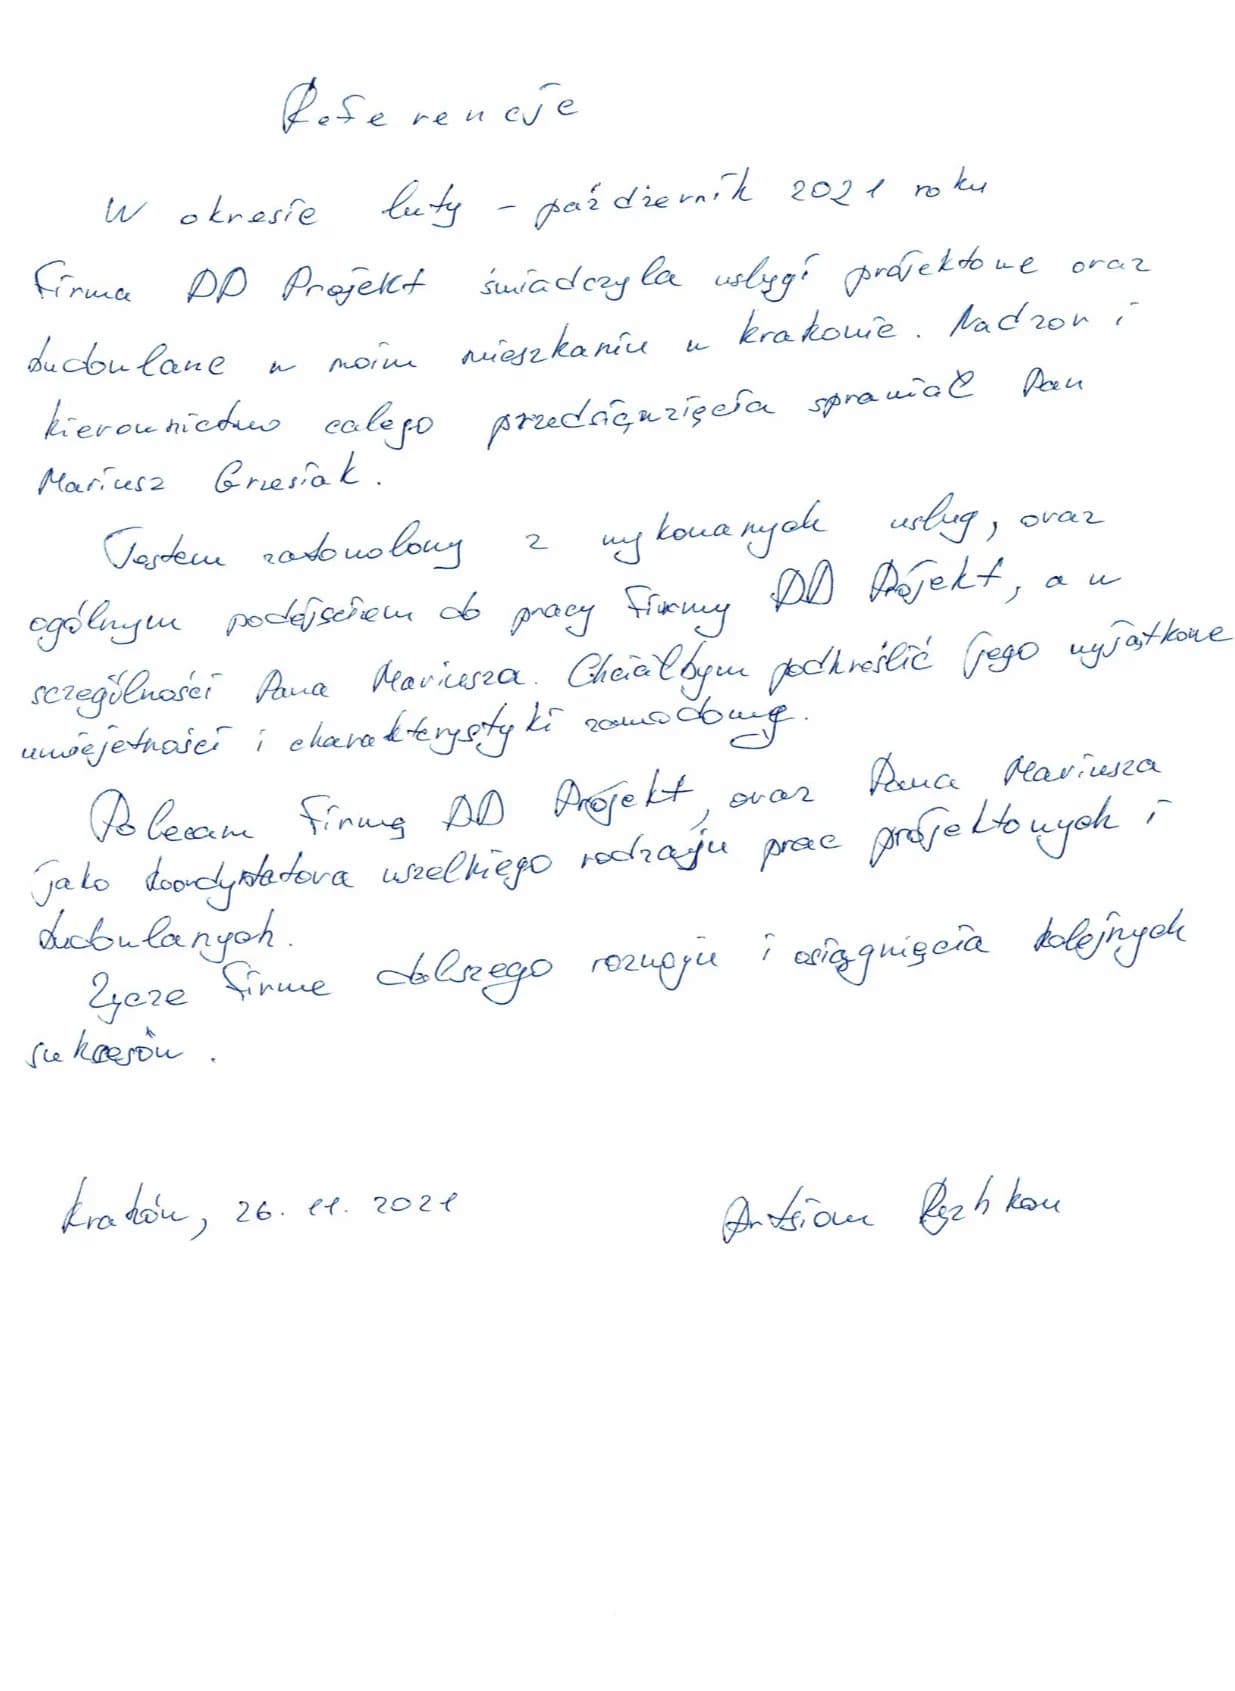 Referencje
W okresie luty - październik 2021 roku
firma DD Projekt świadczyla uslugi projektowe oraz
budowlane w moim mieszkaniu w Krakowie. Nadzor i
kierownictwo calego przedsięwzięcia sprawiał Pan
Mariusz Gwesiak.
Jestem zadowolony z wykonanych uslug, oraz
ogólnym podejściem do pracy firmy DD Projekt, a w
sczególności Pana Mariusza. Chciałbym podkreślić jego wyjątkowe
umiejetności i charakterystyki zawodowe.
Polecam firmę DD Projekt, oraz Pana Mariusza
jako koordynatora wszelkiego rodzaju prac projektowych i
budowlanych.
Zycze firme dalszego rozwoju i osiągnięcia kolejnych
sukcesów.
Kraków, 26.11.2021
Artsiom Ryzhkou